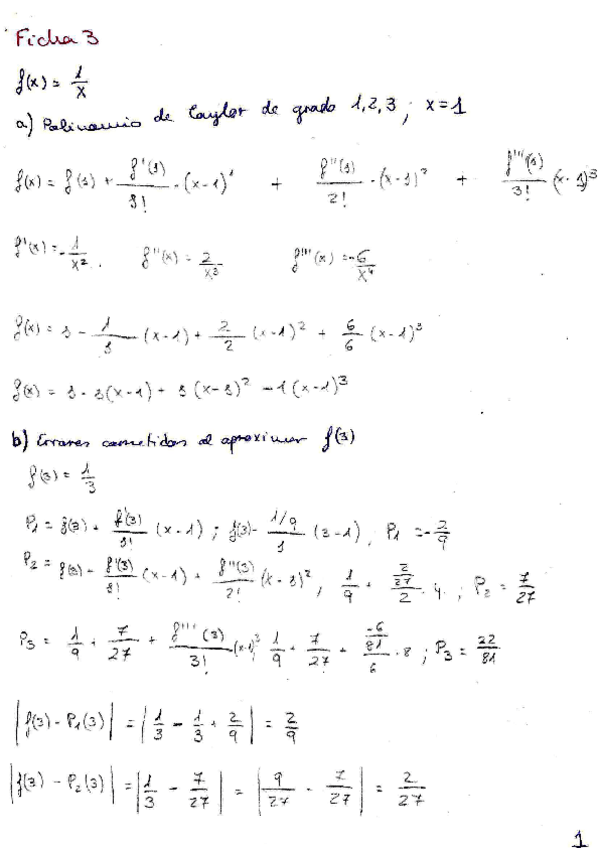 Ficha 3
f(x) = 1/x
a) Polinomio de Taylor de grado 1,2,3 ; x=1
f(x) = f(1) + f'(1)/1! · (x-1)^1 + f''(1)/2! · (x-1)^2 + f'''(1)/3! (x-1)^3
f'(x) = -1/x^2 . f''(x) = 2/x^3 f'''(x) = -6/x^4
f(x) = 1 - 1/1 (x-1) + 2/2 (x-1)^2 + 6/6 (x-1)^3
f(x) = 1 - 1(x-1) + 1(x-1)^2 - 1(x-1)^3
b) Errores cometidos al aproximar f(3)
f(3) = 1/3
P1 = f(3) + f'(3)/1! (x-1) ; f(3) - 1/9/1 (3-1), P1 = -2/9
P2 = f(3) - f'(3)/1! (x-1) + f''(3)/2! (x-1)^2, 1/9 + 2/27/2 · 4. ; P2 = 7/27
P3 = 1/9 + 7/27 + f'''(3)/3! (x-1)^3 1/9 + 7/27 + -6/81/6 · 8 ; P3 = 22/81
|f(3) - P1(3)| = |1/3 - 1/3 + 2/9| = 2/9
|f(3) - P2(3)| = |1/3 - 7/27| = |9/27 - 7/27| = 2/27
1